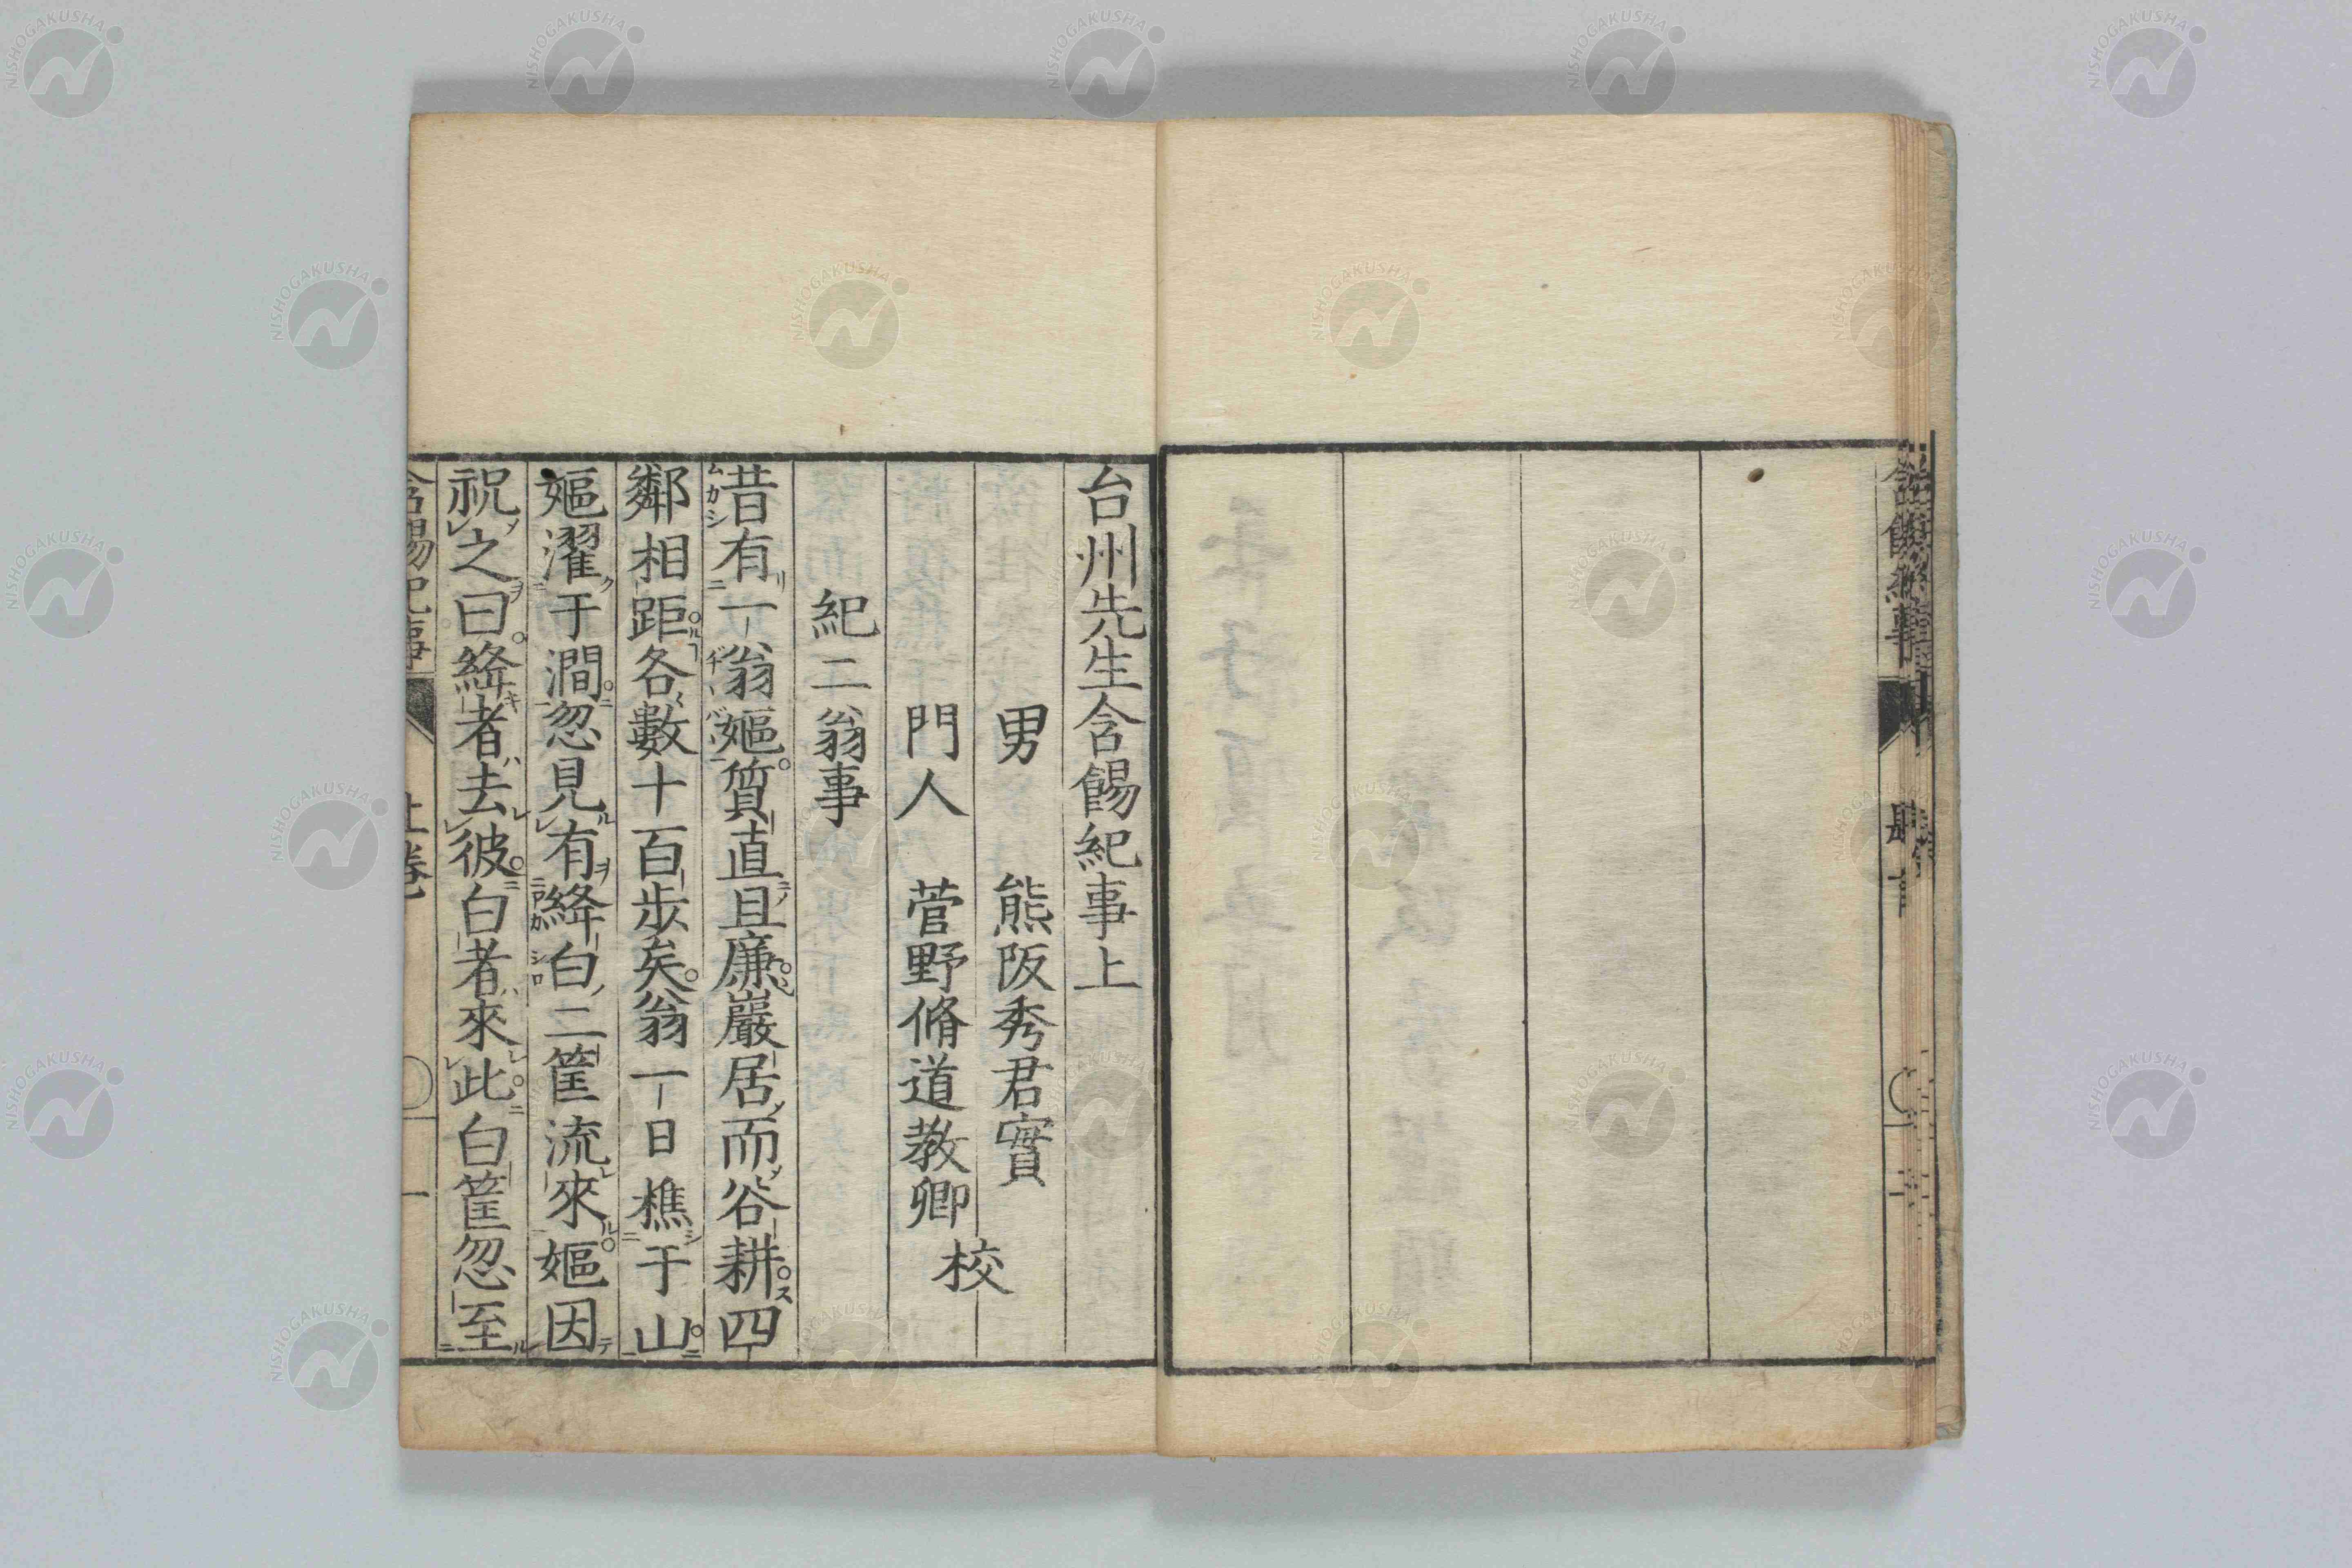 台州先生含餳紀事上
男　熊阪秀君實
門人　菅野脩道教卿
校
紀二翁事
昔有一翁嫗質直且廉巖居而谷耕四
鄰相距各數十百步矣翁一日樵于山
嫗濯于澗忽見有絳白二筐流來嫗因
祝之曰絳者去彼白者來此白筐忽至
含餳紀事
上卷
一
NISHOGAKUSHA